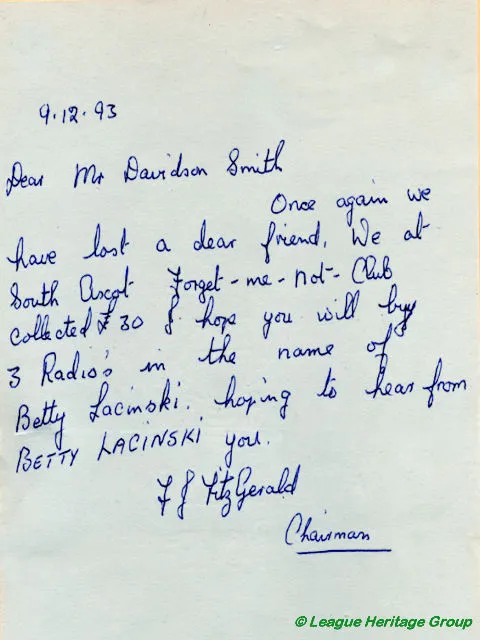 9.12.93
Dear Mr Davidson Smith
Once again we
have lost a dear friend. We at
South Ascot Forget-me-not-Club
collected £30 & hope you will buy
3 Radio's in the name of
Betty Lacinski. hoping to hear from
BETTY LACINSKI you.
F J FitzGerald
Chairman
© League Heritage Group